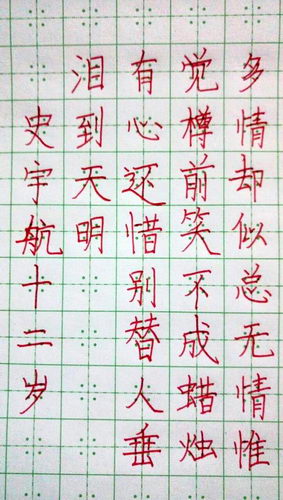 多情却似总无情惟
觉樽前笑不成蜡烛
有心还惜别替人垂
泪到天明
史宇航十二岁